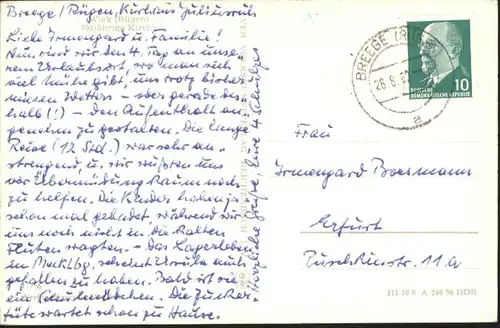 Breege / Rügen, Kurhaus Juliusruh
Wiek (Rügen)
Liebe Irmengard u. Familie!
Nun sind wir den 4. Tag an unse-
rem Urlaubsort, wo man sich
viel Mühe gibt, uns trotz bisher
miesen Wetters – oder gerade des-
halb (!) – den Aufenthalt an-
genehm zu gestalten. Die lange
Reise (12 Std.) war sehr an-
strengend, u. wir wußten uns
vor Übermüdung kaum noch
zu helfen. Die Kinder haben ja
schon mal gebadet, während wir
uns noch nicht in die kalten
Fluten wagten. – Das Lagerleben
in Mecklbg. scheint
gefallen zu haben. Bald ist sie
ein Schulmädchen. Die Zucker-
tüte wartet schon zu Hause.
Herzliche Grüße, Eure 4 Scholzes
BREEGE (RÜGEN)
a
10
DEUTSCHE
DEMOKRATISCHE REPUBLIK
Frau
Irmengard
Erfurt
Puschkinstr. 11a
III 18 6 A 240 56 DDR